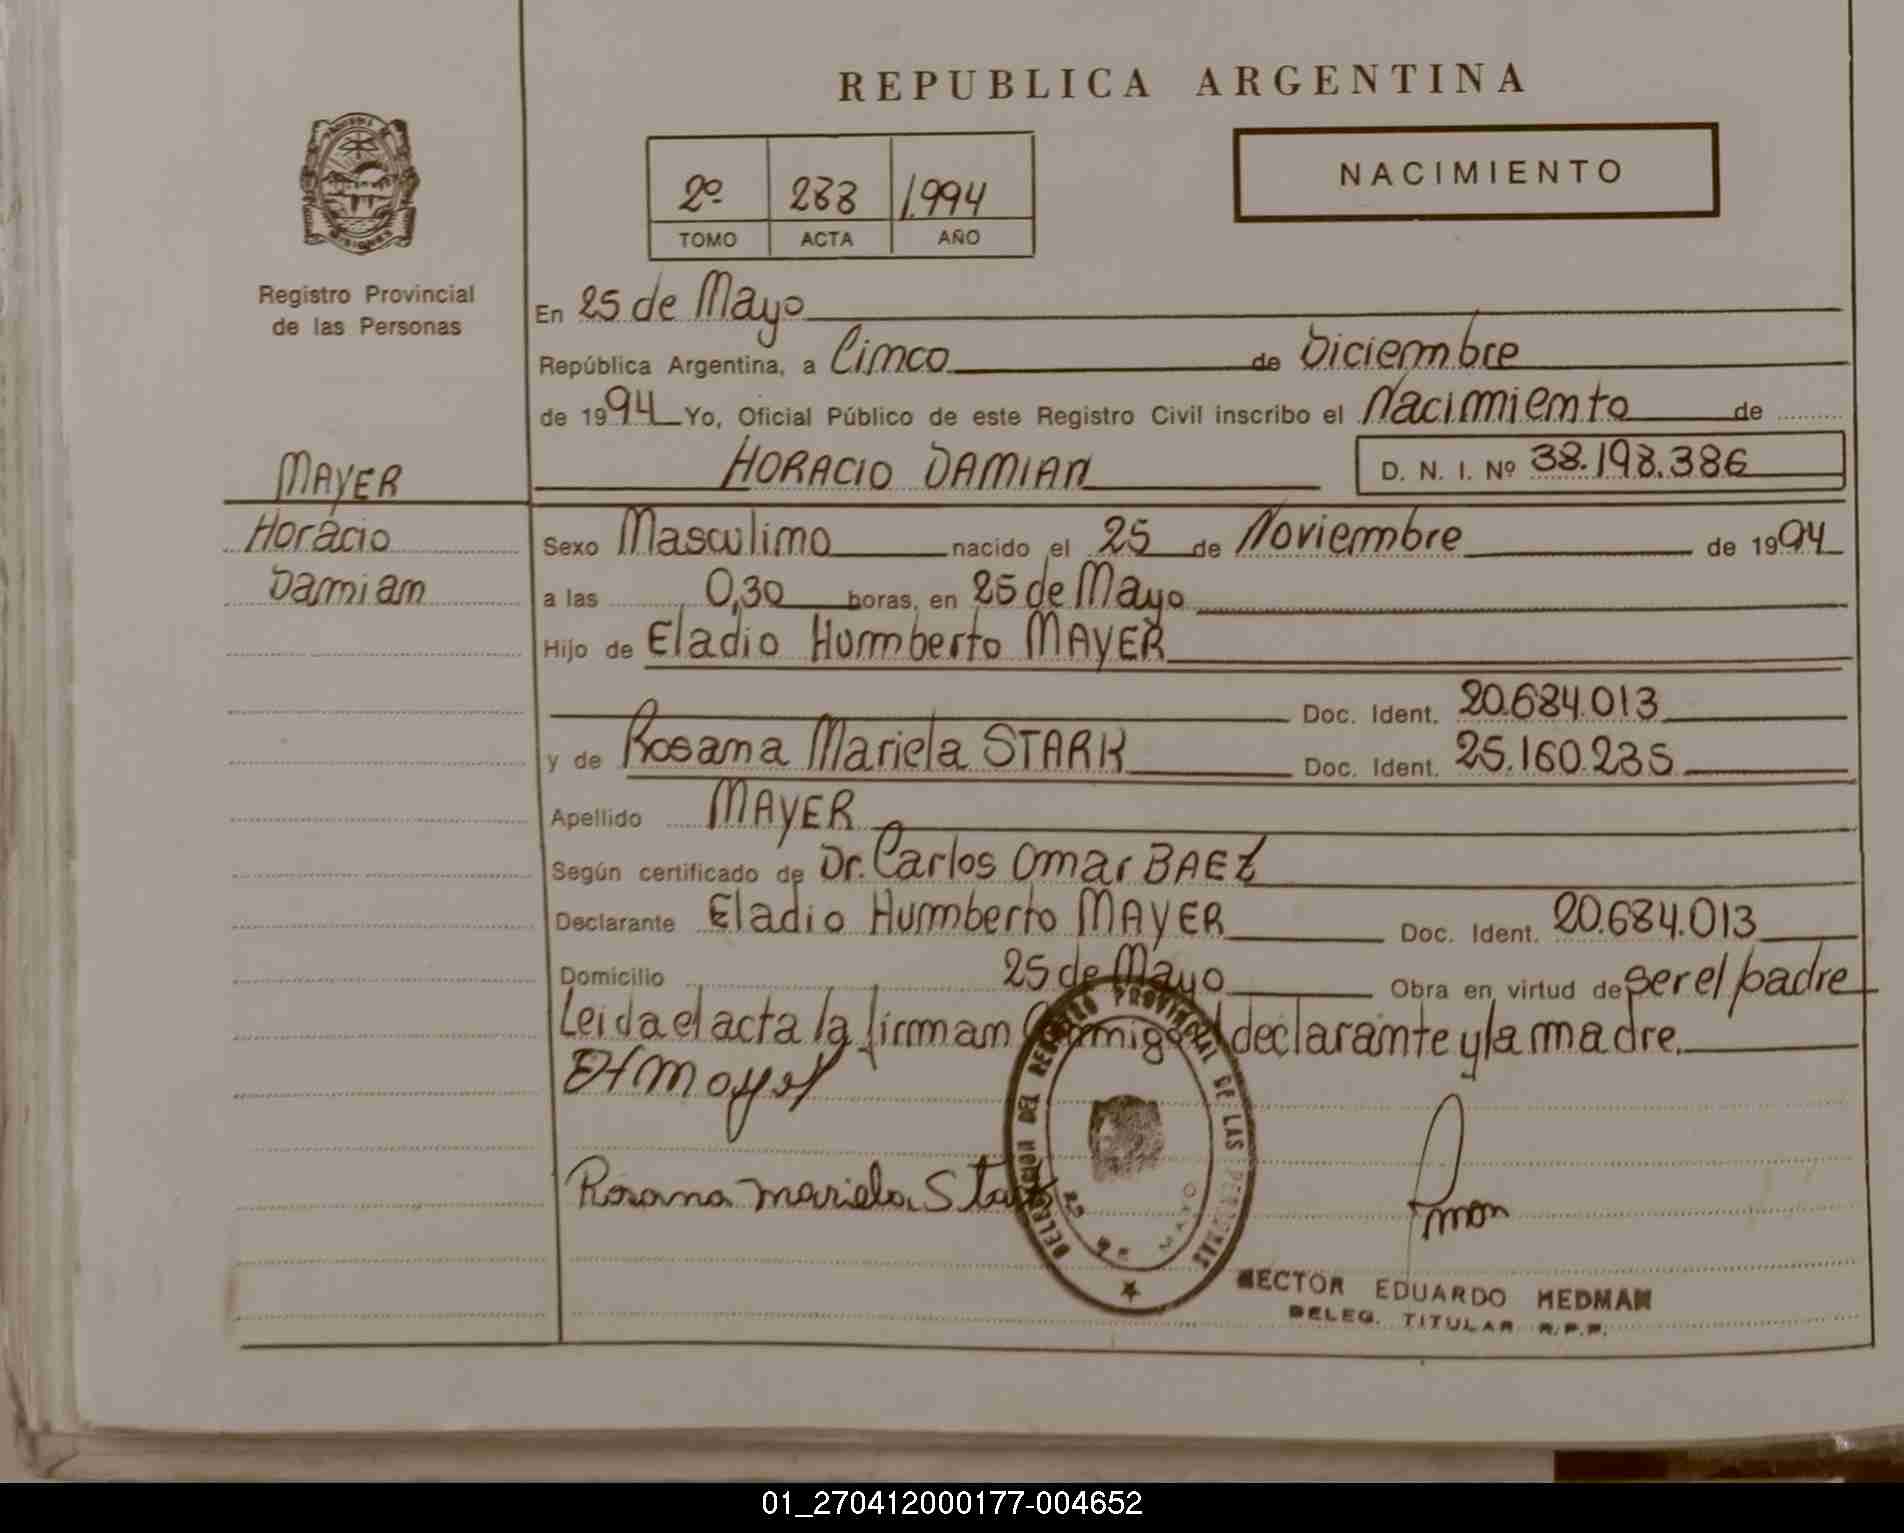 REPUBLICA ARGENTINA
NACIMIENTO
2º 288 1.994
TOMO ACTA AÑO
Registro Provincial
de las Personas
En 25 de Mayo
República Argentina, a Cinco de Diciembre
de 1994 Yo, Oficial Público de este Registro Civil inscribo el Nacimiento de
MAYER
HORACIO DAMIAN D. N. I. Nº 38.198.386
Horacio
Damian
Sexo Masculino nacido el 25 de Noviembre de 1994
a las 0,30 horas, en 25 de Mayo
Hijo de Eladio Humberto MAYER
Doc. Ident. 20.684.013
y de Rosana Mariela STARK Doc. Ident. 25.160.235
Apellido MAYER
Según certificado de Dr. Carlos Omar BAEZ
Declarante Eladio Humberto MAYER Doc. Ident. 20.684.013
Domicilio 25 de Mayo Obra en virtud de ser el padre
Leida el acta la firman conmigo el declarante y la madre.
EHMayer
Rosana Mariela Stark
DELEGACION DEL REGISTRO PROVINCIAL DE LAS PERSONAS
25 DE MAYO
HECTOR EDUARDO HEDMAN
DELEG. TITULAR R.P.P.
01_270412000177-004652